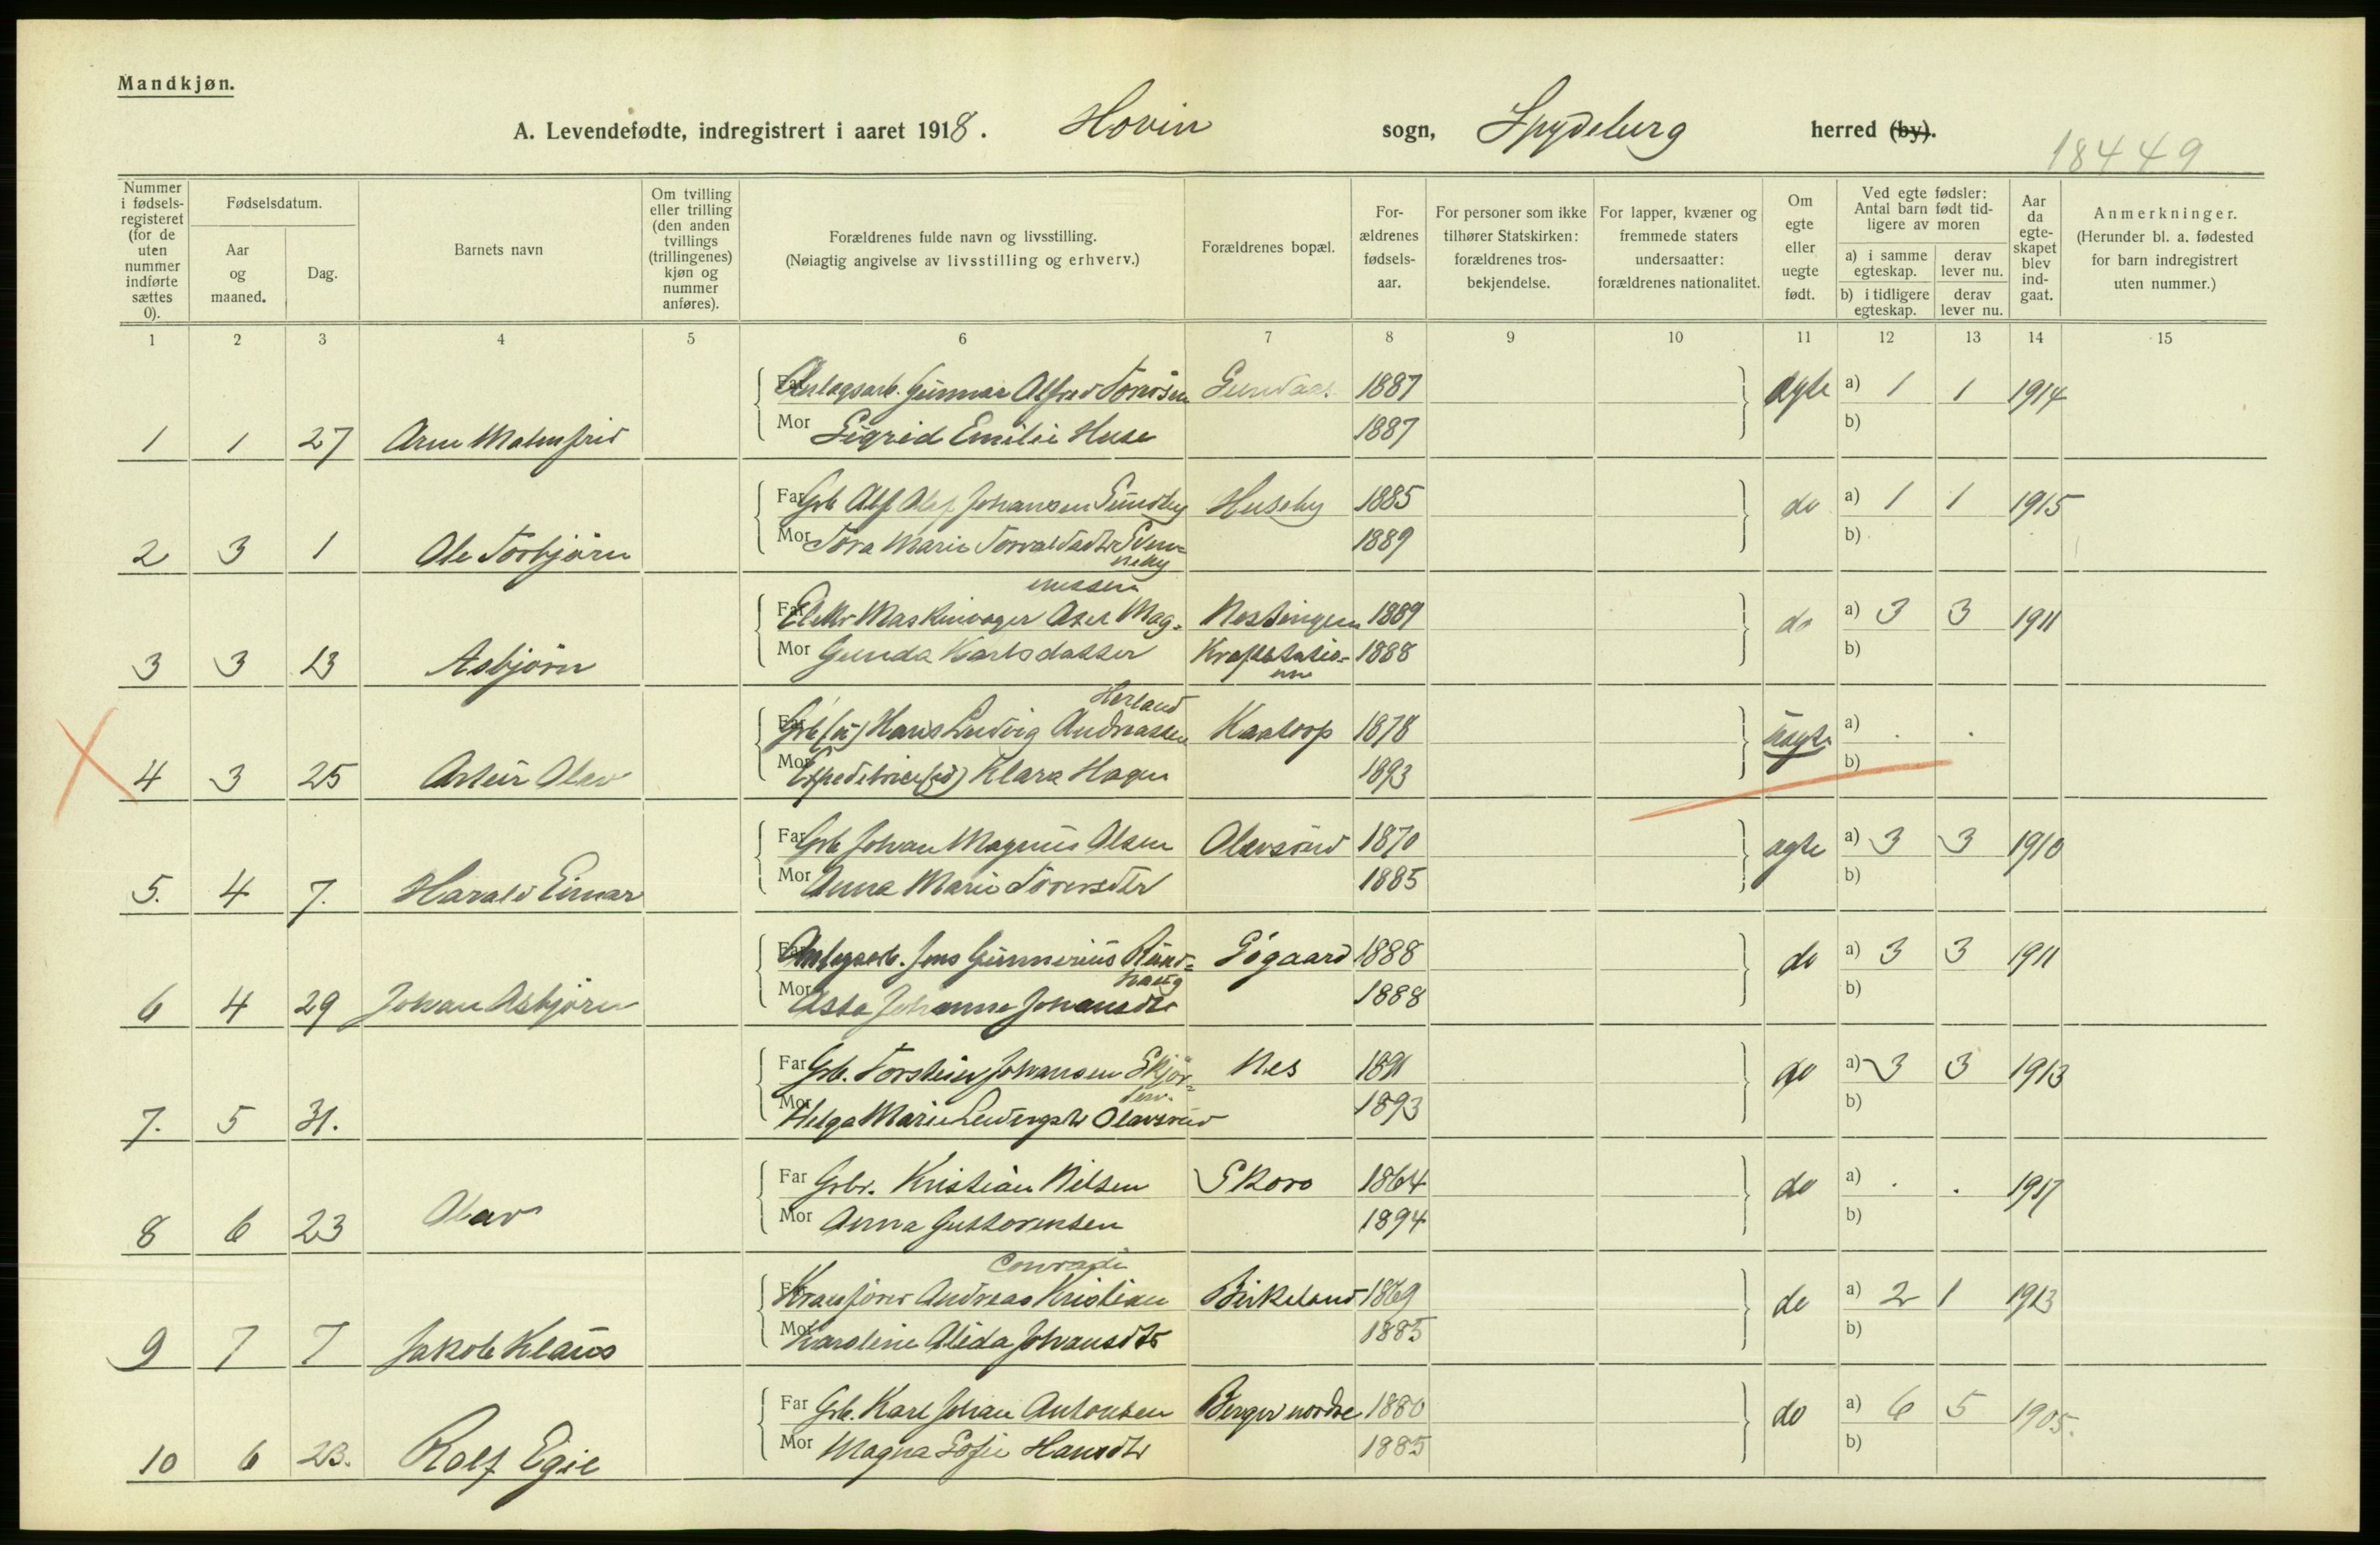 Mandkjøn.
A. Levendefødte, indregistrert i aaret 1918. Hovin sogn, Spydeberg herred (by).
18449
Nummer i fødsels-registeret (for de uten nummer indførte sættes 0).
Fødselsdatum.
Aar og maaned.
Dag.
Barnets navn
Om tvilling eller trilling (den anden tvillings (trillingenes) kjøn og nummer anføres).
Forældrenes fulde navn og livsstilling.
(Nøiagtig angivelse av livsstilling og erhverv.)
Forældrenes bopæl.
For-ældrenes fødsels-aar.
For personer som ikke tilhører Statskirken: forældrenes tros-bekjendelse.
For lapper, kvæner og fremmede staters undersaatter: forældrenes nationalitet.
Om egte eller uegte født.
Ved egte fødsler: Antal barn født tid-ligere av moren
a) i samme egteskap.
derav lever nu.
b) i tidligere egteskap.
derav lever nu.
Aar da egte-skapet blev ind-gaat.
Anmerkninger.
(Herunder bl. a. fødested for barn indregistrert uten nummer.)
1 2 3 4 5 6 7 8 9 10 11 12 13 14 15
Far Anlægsarb. Gunnar Alfred 1887 ægte a) 1 1 1914
1 1 27 Arne Malmfrid Mor Sigrid Emilie Huse 1887 b)
Far Grb Alf Olaf Johansen Sundby Huseby 1885 do a) 1 1 1915
2 3 1 Ole Torbjörn Mor Tora Marie 1889 b)
neby
nussen
Far Elektr Maskinpasser Axel Mag- 1889 do a) 3 3 1911
3 3 13 Asbjörn Mor Gunda Karlsdatter Kraftstatio- 1888 b)
nen
Herland
Far Grb (u) Hans Ludvig Andreassen Kaatorp 1878 uægte a) . .
4 3 25 Artur Olav Mor Klara Hagen 1893 b)
Far Grb Johan Magnus Olsen Olavsrud 1870 ægte a) 3 3 1910
5. 4 7. Harald Einar Mor Anna Marie 1885 b)
Far Anlægsarb. Jens Gunnerius Rund- Sögaard 1888 do a) 3 3 1911
haug
6 4 29 Johan Asbjörn Mor Asta Johanne Johansdtr 1888 b)
Far Grb. Torstein Johansen Skjör- Nes 1891 do a) 3 3 1913
7. 5 31. Mor Helga Marie Ludvigsdtr Olavsrud 1893 b)
Far Grbr. Kristian Nilsen Skoro 1864 do a) . . 1917
8 6 23 Olav Mor Anna Guttormsen 1894 b)
Conradi
Far Andreas Kristian Birkeland 1869 do a) 2 1 1913
9 7 7 Jakob Klaus Mor Karoline Alida Johansdtr 1885 b)
Far Grb. Karl Johan Antonsen Berger nordre 1880 do a) 6 5 1905.
10 6 23. Rolf Egil Mor Magna Sofie Hansdtr 1885 b)